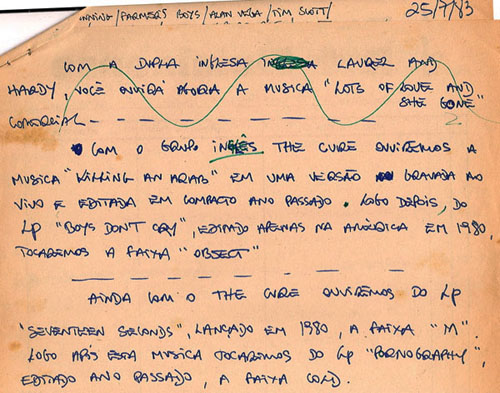 UNNING/FARMERS BOYS/ALAN VEGA/TIM SCOTT/ 25/7/83
COM A DUPLA INGLESA LAUREL AND
HARDY, VOCÊ OUVIRÁ AGORA A MUSICA "LOTS OF LOVE AND
SHE GONE"
COMERCIAL — — — — — — — — — 2
COM O GRUPO INGLÊS THE CURE OUVIREMOS A
MUSICA "KILLING AN ARAB" EM UMA VERSÃO GRAVADA AO
VIVO E EDITADA EM COMPACTO ANO PASSADO. LOGO DEPOIS, DO
LP "BOYS DON'T CRY", EDITADO APENAS NA AMÉRICA EM 1980,
TOCAREMOS A FAIXA "OBJECT"
— — — — — — — — — —
AINDA COM O THE CURE OUVIREMOS DO LP
"SEVENTEEN SECONDS", LANÇADO EM 1980, A FAIXA "M".
LOGO APÓS ESTA MUSICA TOCAREMOS DO LP "PORNOGRAPHY",
EDITADO ANO PASSADO, A FAIXA COLD.